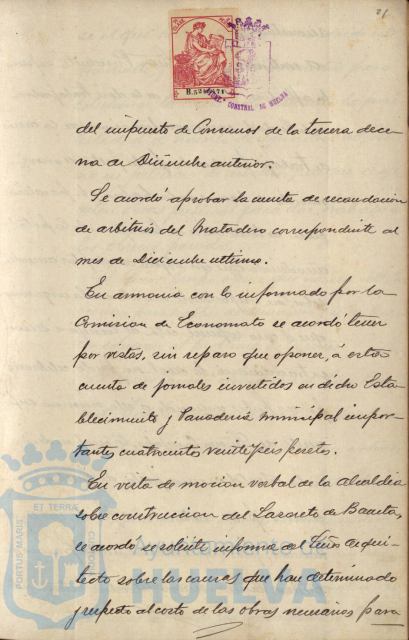 21
B.5
AYUNT. CONSTNAL DE HUELVA
del impuesto de Consumos de la tercera dece
na de Diciembre anterior.
Se acordó aprobar la cuenta de recaudación
de arbitrios del Matadero correspondiente al
mes de Diciembre ultimo.
En armonia con lo informado por la
Comision de Economato se acordó tener
por vistas, sin reparo que oponer, á esta
cuenta de jornales invertidos en dicho Esta-
blecimiento y Panaderia municipal impor-
tantes cuatrocientas veintiseis pesetas.
En vista de mocion verbal de la Alcaldia
sobre construccion del Lazareto de Bacuta,
se acordó se solicite informe del Señor Arqui-
tecto sobre las causas que han determinado
y respecto al costo de las obras necesarias para
PORTUS MARIS
ET TERRÆ
Ayuntamiento de
HUELVA